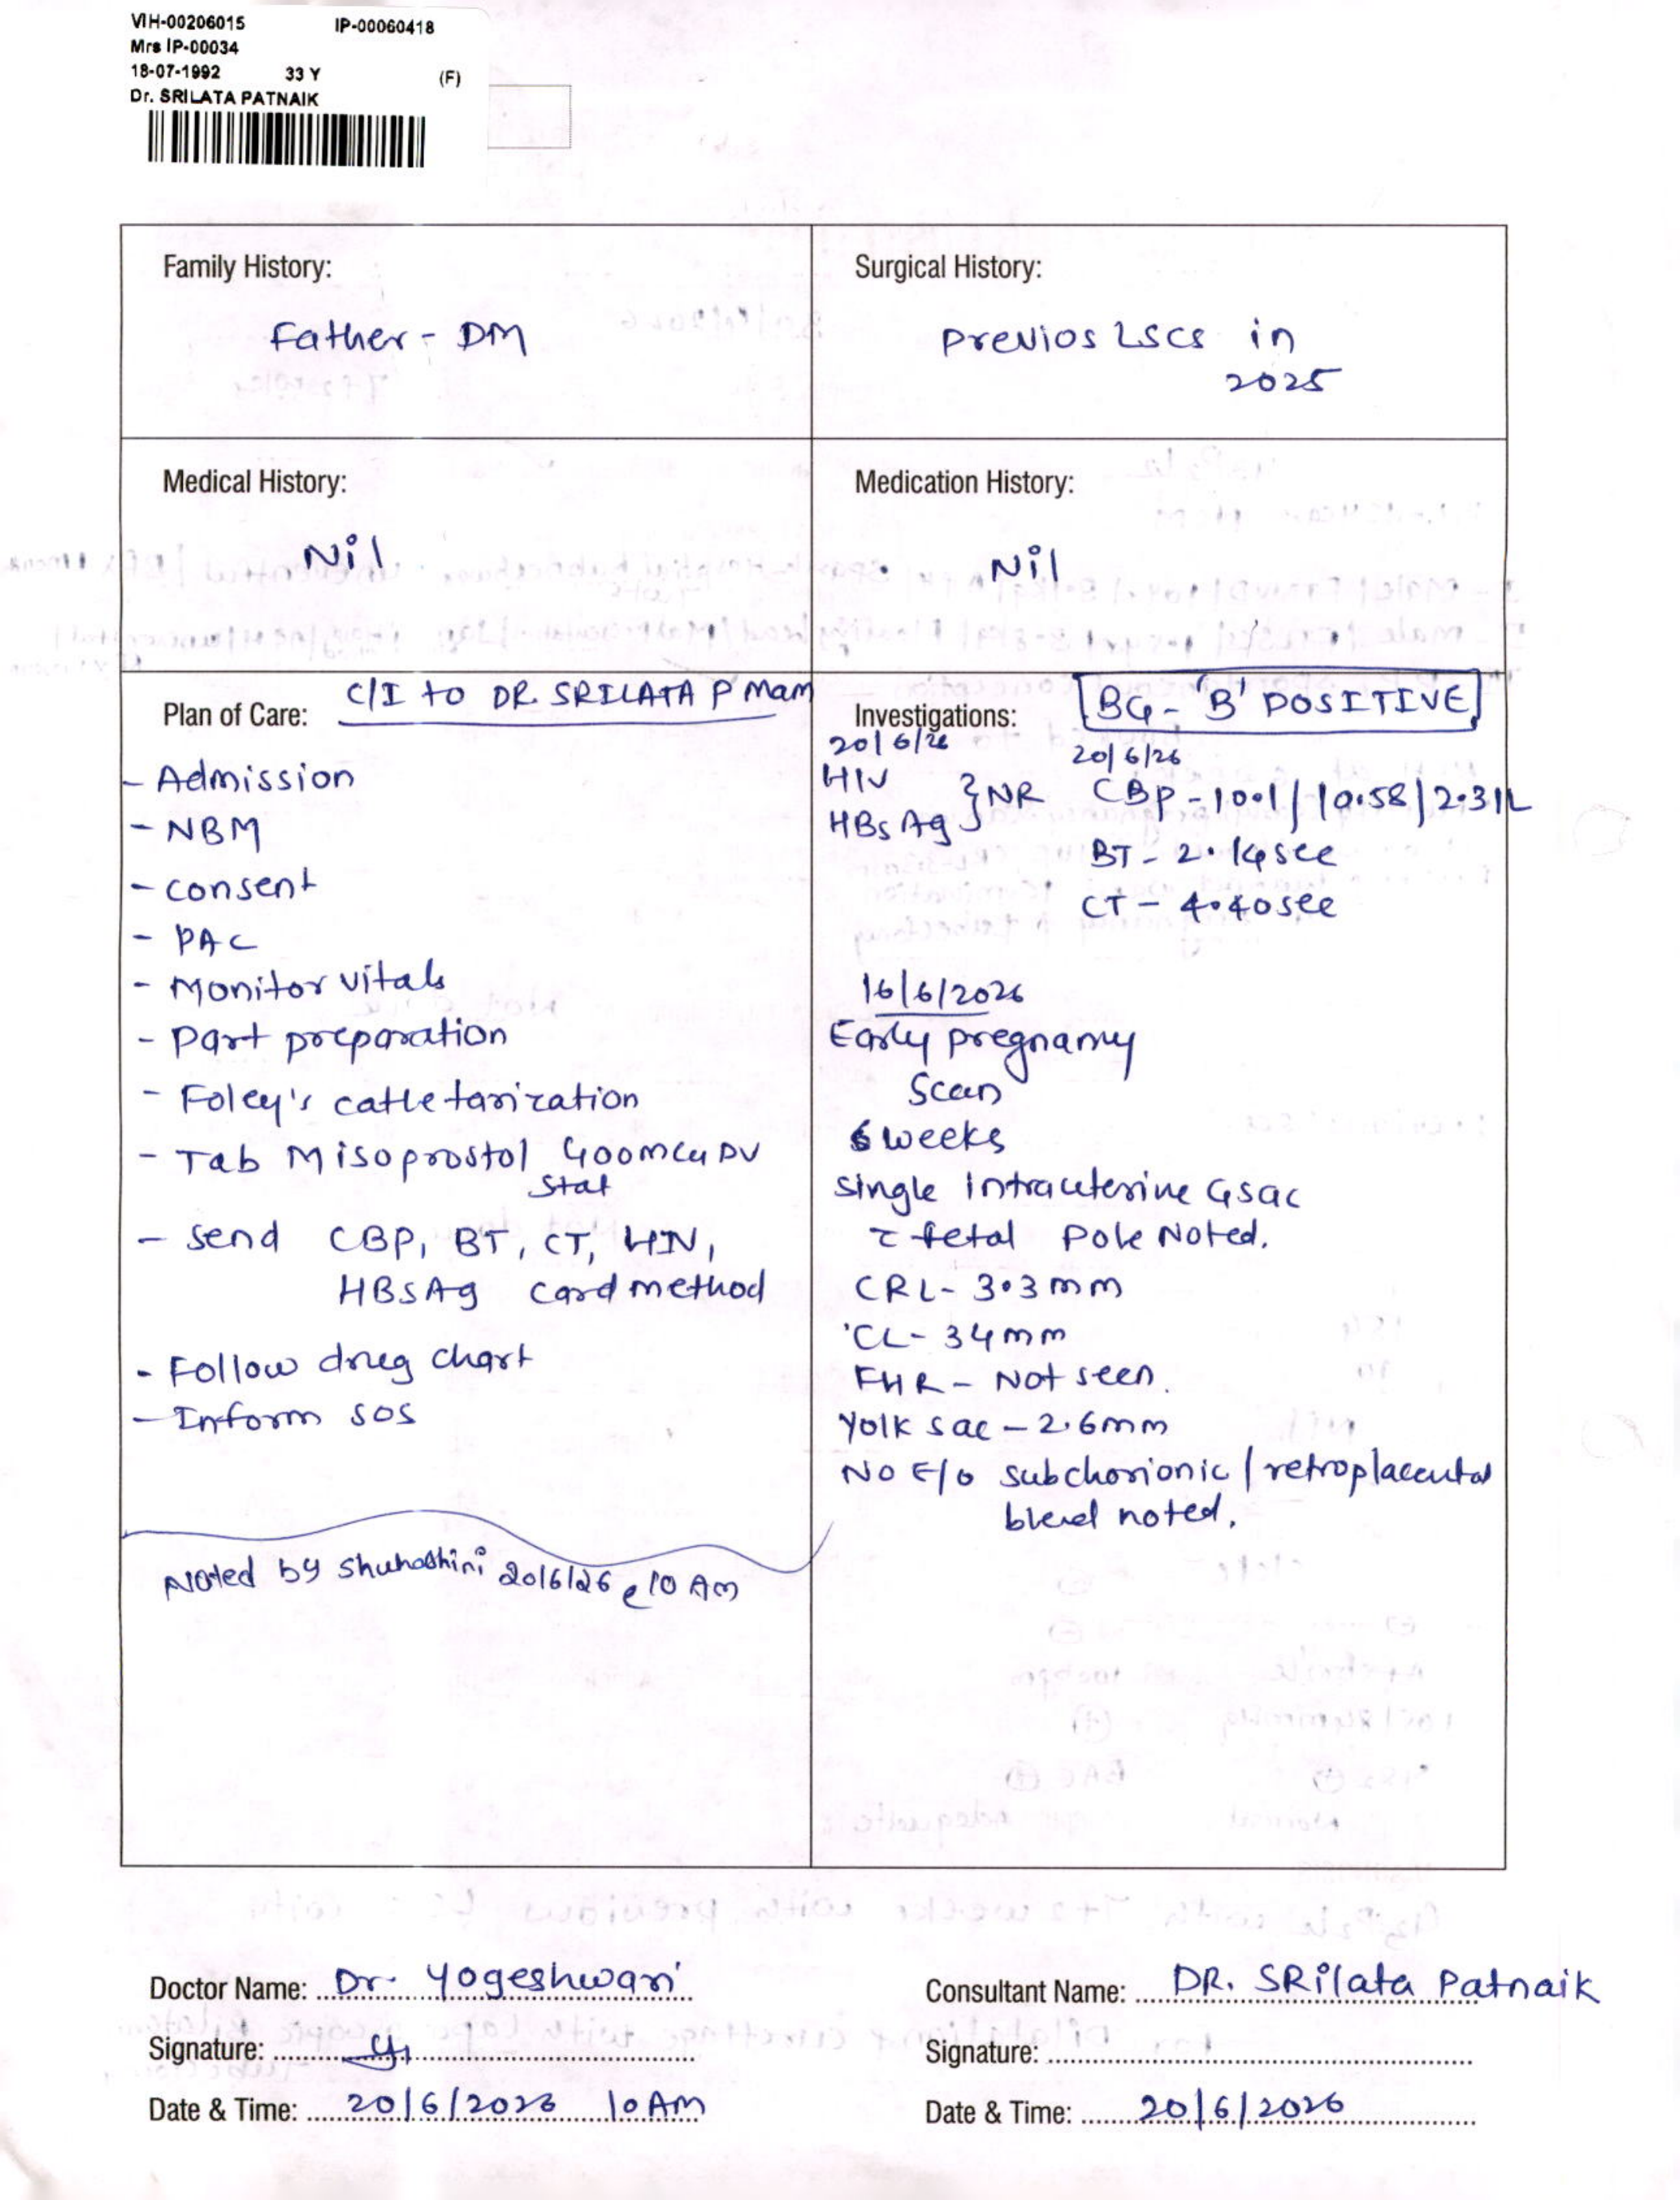 VIH-00206015 IP-00060418
Mrs IP-00034
18-07-1992 33 Y (F)
Dr. SRILATA PATNAIK
Family History:
Father - DM
Surgical History:
Previos LSCS in
2025
Medical History:
Nil
Medication History:
Nil
Plan of Care: C/I to DR. SRILATA P Mam
- Admission
- NBM
- consent
- PAC
- Monitor vitals
- Part preparation
- Foley's catletarization
- Tab Misoprostol 400mcg PV
Stat
- Send CBP, BT, CT, HIV,
HBsAg card method
- Follow drug chart
- Inform SOS
Noted by Shuhashini 20/6/26 @ 10 Am
Investigations: BG - 'B' POSITIVE
20/6/26
HIV
HBsAg } NR
20/6/26
CBP - 10.1 / 10.58 / 2.31L
BT - 2.14 sec
CT - 4.40 sec
16/6/2026
Early pregnancy
Scan
6 weeks
Single Intrauterine Gsac
c̄ fetal Pole Noted.
CRL - 3.3mm
CL - 34mm
FHR - Not seen.
Yolk sac - 2.6mm
No E/o subchorionic / retroplacental
bleed noted.
Doctor Name: Dr. Yogeshwari
Signature:
Date & Time: 20/6/2026 10 AM
Consultant Name: DR. SRilata Patnaik
Signature:
Date & Time: 20/6/2026